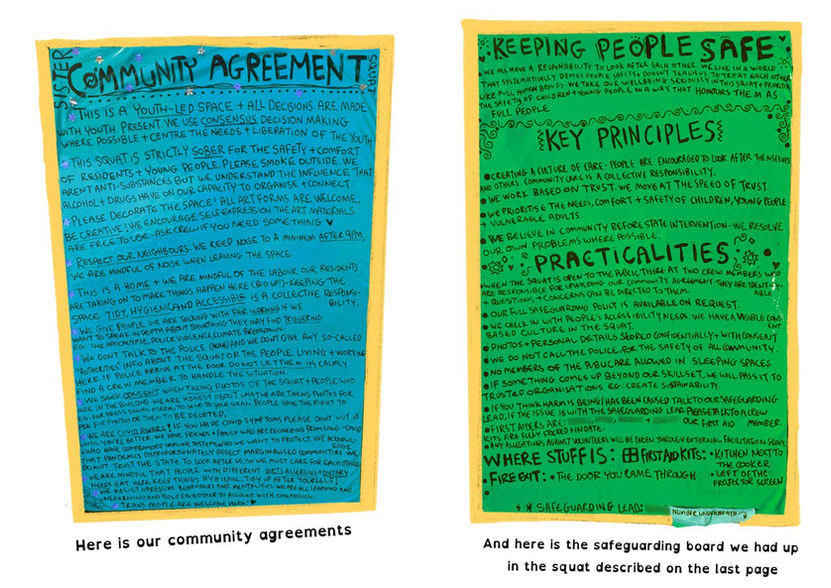 SISTER
SQUAT
COMMUNITY AGREEMENT
THIS IS A YOUTH-LED SPACE + ALL DECISIONS ARE MADE
WITH YOUTH PRESENT. WE USE CONSENSUS DECISION MAKING
WHERE POSSIBLE + CENTRE THE NEEDS + LIBERATION OF THE YOUTH
THIS SQUAT IS STRICTLY SOBER FOR THE SAFETY + COMFORT
OF RESIDENTS + YOUNG PEOPLE. PLEASE SMOKE OUTSIDE. WE
ARENT ANTI-SUBSTANCES BUT WE UNDERSTAND THE INFLUENCE THAT
ALCOHOL + DRUGS HAVE ON OUR CAPACITY TO ORGANISE + CONNECT.
PLEASE DECORATE THE SPACE! ALL ART FORMS ARE WELCOME,
BE CREATIVE! WE ENCOURAGE SELF EXPRESSION. THE ART MATERIALS
ARE FREE TO USE - ASK CREW IF YOU NEED SOMETHING ♥
RESPECT OUR NEIGHBOURS. WE KEEP NOISE TO A MINIMUM AFTER 9PM,
WE ARE MINDFUL OF NOISE WHEN LEAVING THE SPACE.
THIS IS A HOME + WE ARE MINDFUL OF THE LABOUR OUR RESIDENTS
ARE TAKING ON TO MAKE THINGS HAPPEN HERE (BIG UP!) - KEEPING THE
SPACE TIDY, HYGIENIC AND ACCESSIBLE IS A COLLECTIVE RESPONSI-
BILITY.
WE GIVE PEOPLE WE ARE TALKING WITH FAIR WARNING IF WE
WANT TO SPEAK IN DEPTH ABOUT SOMETHING THEY MAY FIND TRIGGERING
EG: THE APOCALYPSE, POLICE VIOLENCE, CLIMATE BREAKDOWN.
WE DON'T TALK TO THE POLICE AND WE DON'T GIVE ANY SO-CALLED
"AUTHORITIES" INFO ABOUT THE SQUAT OR THE PEOPLE LIVING + WORKING
HERE. IF POLICE ARRIVE AT THE DOOR DO NOT LET THEM IN, CALMLY
FIND A CREW MEMBER TO HANDLE THE SITUATION.
WE SEEK CONSENT WHEN TAKING PHOTOS OF THE SQUAT + PEOPLE WHO
ARE IN THE BUILDING. WE ARE HONEST ABOUT WHAT WE ARE TAKING PHOTOS FOR,
EG: FOR PRESS, SOCIAL MEDIA, TO SEND TO YOUR GRAN. PEOPLE HAVE THE RIGHT TO
ASK FOR PHOTOS OF THEM TO BE DELETED.
WE ARE COVID AWARE! IF YOU HAVE COVID SYMPTOMS PLEASE DON'T VISIT US
UNTIL YOU'RE BETTER. WE HAVE FRIENDS + FAMILY WHO ARE RECOVERING FROM LONG-COVID
WHO HAVE COMPROMISED IMMUNE SYSTEMS WHO WE WANT TO PROTECT. WE ACKNOWL-
EDGE
THAT PANDEMICS DISPROPORTIONATELY AFFECT MARGINALISED COMMUNITIES. WE
DO NOT TRUST THE STATE TO LOOK AFTER US, SO WE MUST CARE FOR EACH OTHER
WE ARE MINDFUL THAT PEOPLE WITH DIFFERENT DIETS ALLERGIES + DIETARY
NEEDS EAT HERE. KEEP THINGS HYGIENIC. TIDY UP AFTER YOURSELF!
WE RESIST OPRESSIVE BEHAVIOURS AND MENTALITIES. WE ARE ALL LEARNING AND
UNLEARNING AND HOLD EACH OTHER TO ACCOUNT WITH COMPASSION.
TRANS PEOPLE ARE WELCOME HERE! ♥
Here is our community agreements
KEEPING PEOPLE SAFE
WE ALL HAVE A RESPONSIBILITY TO LOOK AFTER EACH OTHER. WE LIVE IN A WORLD
THAT SYSTEMATICALLY DENIES PEOPLE SAFETY + DOESN'T TEACH US TO TREAT EACH OTHER
LIKE FULL HUMAN BEINGS. WE TAKE OUR WELLBEING SERIOUSLY IN THIS SQUAT + PRIORITISE
THE SAFETY OF CHILDREN + YOUNG PEOPLE IN A WAY THAT HONOURS THEM AS
FULL PEOPLE.
KEY PRINCIPLES
CREATING A CULTURE OF CARE - PEOPLE ARE ENCOURAGED TO LOOK AFTER THEMSELVES
AND OTHERS. COMMUNITY CARE IS A COLLECTIVE RESPONSIBILITY.
WE WORK BASED ON TRUST. WE MOVE AT THE SPEED OF TRUST.
WE PRIORITISE THE NEEDS, COMFORT + SAFETY OF CHILDREN, YOUNG PEOPLE
VULNERABLE ADULTS.
WE BELIEVE IN COMMUNITY BEFORE STATE INTERVENTION - WE RESOLVE
OUR OWN PROBLEMS WHERE POSSIBLE.
PRACTICALITIES
WHEN THE SQUAT IS OPEN TO THE PUBLIC THERE AT TWO CREW MEMBERS WHO
ARE RESPONSIBLE FOR UPHOLDING OUR COMMUNITY AGREEMENT. THEY ARE IDENTIFI-
ABLE.
QUESTIONS + CONCERNS CAN BE DIRECTED TO THEM.
OUR FULL SAFEGUARDING POLICY IS AVAILABLE ON REQUEST.
WE CHECK IN WITH PEOPLE'S ACCESSIBILITY NEEDS. WE HAVE A VISIBLE CONS-
ENT
BASED CULTURE IN THE SQUAT.
PHOTOS + PERSONAL DETAILS STORED CONFIDENTIALLY + WITH CONSENT
WE DO NOT CALL THE POLICE, FOR THE SAFETY OF ALL COMMUNITY.
NO MEMBERS OF THE PUBLIC ARE ALLOWED IN SLEEPING SPACES
IF SOMETHING COMES UP BEYOND OUR SKILLSET, WE WILL PASS IT TO
TRUSTED ORGANISATIONS EG: CREATE SUSTAINABILITY.
IF YOU THINK HARM IS BEING/HAS BEEN CAUSED TALK TO OUR SAFEGUARDING
LEAD, IF THE ISSUE IS WITH THE SAFEGUARDING LEAD PLEASE TALK TO A CREW
MEMBER.
FIRST AIDERS ARE: + OUR FIRST AID
KITS ARE FULLY STOCKED + IN DATE.
ANY ALLEGATIONS AGAINST VOLUNTEERS WILL BE TAKEN THROUGH EXTERNAL FACILITATION GROUPS.
WHERE STUFF IS: FIRST AID KITS: • KITCHEN NEXT TO
THE COOKER
FIRE EXIT: • THE DOOR YOU CAME THROUGH • LEFT OF THE
PROJECTOR SCREEN
SAFEGUARDING LEAD:
NUMBER UNDERNEATH
And here is the safeguarding board we had up
in the squat described on the last page